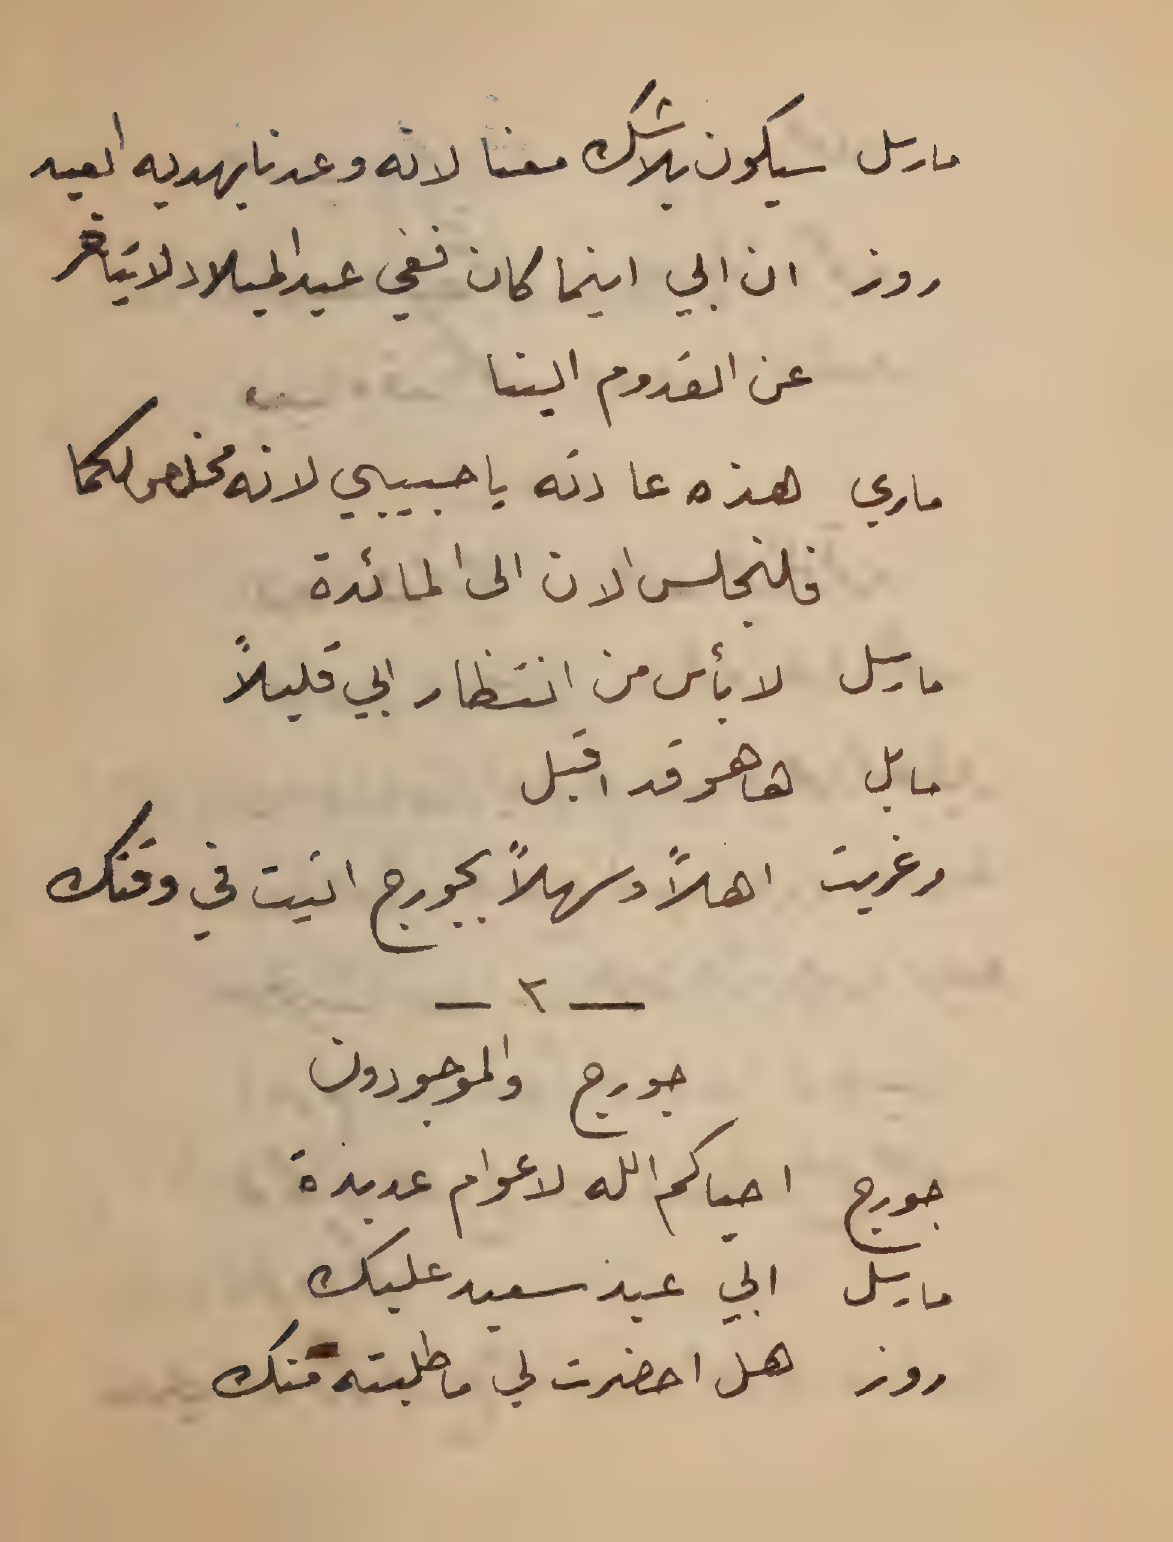 مارسل سيكون بلا شك معنا لانه وعدنا بهدية العيد
روز ان ابي اينما كان ففي عيد الميلاد لا يتأخر
عن القدوم الينا
ماري هذه عادته يا حبيبي لانه مخلص لكما
فلنجلس الان الى المائدة
مارسل لا بأس من انتظار ابي قليلاً
مابل ها هو قد اقبل
مرغريت اهلاً وسهلاً بجورج اتيت في وقتك
— ٢ —
جورج والموجودون
جورج احياكم الله لاعوام عديدة
مارسل ابي عيد سعيد عليك
روز هل احضرت لي ما طلبته منك